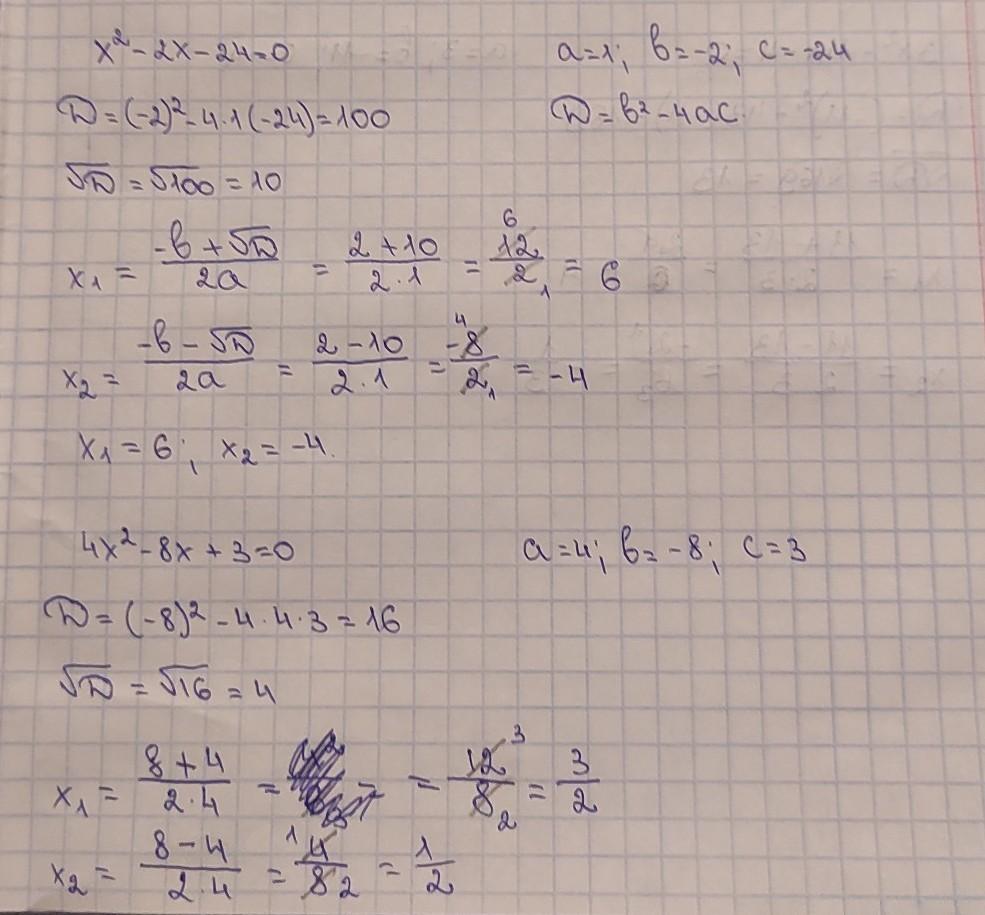 x² - 2x - 24 = 0    a = 1; b = -2; c = -24
D = (-2)² - 4·1(-24) = 100    D = b² - 4ac.
√D = √100 = 10
x₁ = (-b + √D)/(2a) = (2 + 10)/(2·1) = 12/2 = 6
x₂ = (-b - √D)/(2a) = (2 - 10)/(2·1) = -8/2 = -4
x₁ = 6; x₂ = -4.
4x² - 8x + 3 = 0    a = 4; b = -8; c = 3
D = (-8)² - 4·4·3 = 16
√D = √16 = 4
x₁ = (8 + 4)/(2·4) = = 12/8 = 3/2
x₂ = (8 - 4)/(2·4) = 4/8 = 1/2